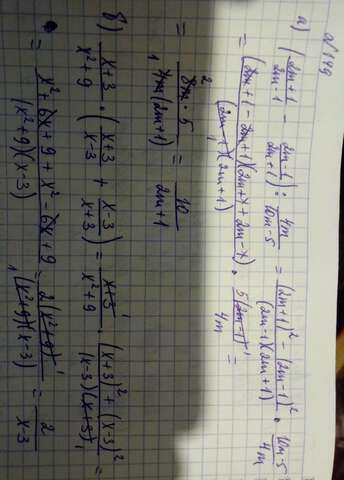 № 149
а) (2m+1/2m-1 - 2m-1/2m+1) : 4m/10m-5 = (2m+1)² - (2m-1)²/(2m-1)(2m+1) · 10m-5/4m
= (2m+1-2m+1)(2m+1+2m-1)/(2m-1)(2m+1) · 5(2m-1)/4m =
= 2 8m · 5/1 4m(2m+1) = 10/2m+1
б) x+3/x²+9 · (x+3/x-3 + x-3/x+3) = x+3/x²+9 · (x+3)² + (x-3)²/(x-3)(x+3) =
= x²+6x+9+x²-6x+9/(x²+9)(x-3) = 2(x²+9)/(x²+9)(x-3) = 2/x-3